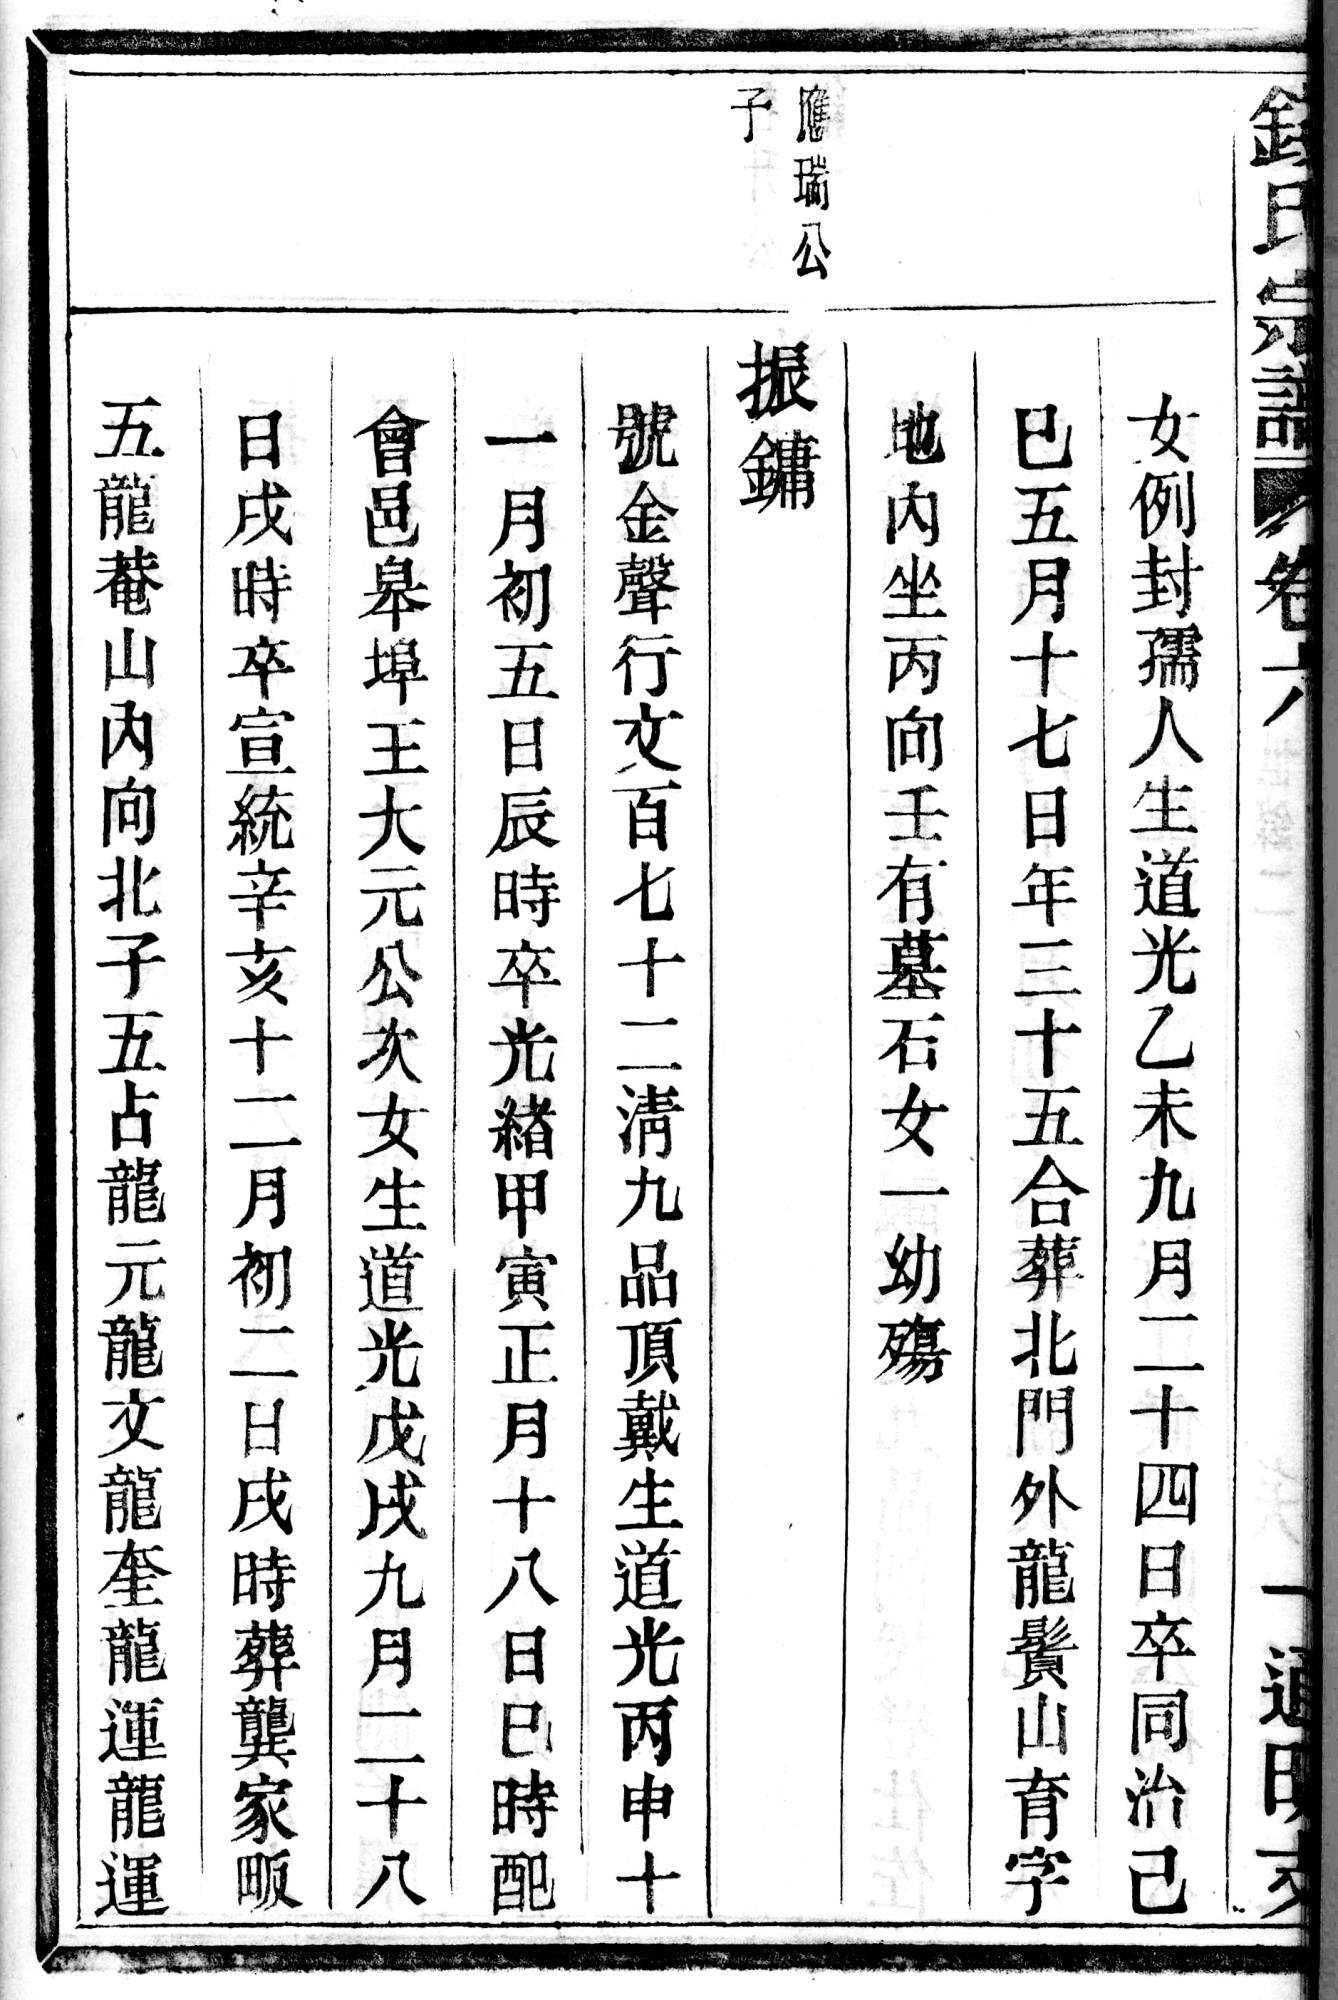 氏宗譜 卷六
女例封孺人生道光乙未九月二十四日卒同治己
巳五月十七日年三十五合葬北門外龍鬢山育字
地內坐丙向壬有墓石女一幼殤
應瑞公
子
振鏞
號金聲行文百七十二淸九品頂戴生道光丙申十
一月初五日辰時卒光緖甲寅正月十八日巳時配
會邑皋埠王大元公次女生道光戊戌九月二十八
日戌時卒宣統辛亥十二月初二日戌時葬龔家畈
五龍菴山內向北子五占龍元龍文龍奎龍運龍運